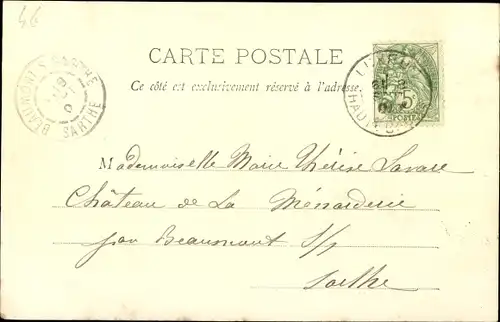 46
CARTE POSTALE
Ce côté est exclusivement réservé à l'adresse.
BEAUMONT S. SARTHE
SARTHE
5c
POSTES
Mademoiselle Marie Thérèse Savare
Château de La Ménarderie
par Beaumont s/s
Sarthe